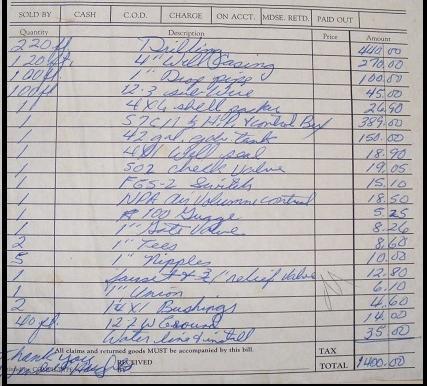 SOLD BY CASH C.O.D. CHARGE ON ACCT. MDSE. RETD. PAID OUT
Quantity Description Price Amount
220 ft Drilling 440.00
120 ft. 4" Well Casing 270.00
100 ft. 1" Drop pipe 100.00
100 ft 12-3 sub Wire 45.00
1 4X6 shell packer 26.90
1 S7C11 ½ H.P. & Control Box 389.00
1 42 gal galv. tank 150.00
1 4X1 Well seal 18.90
1 502 check Valve 19.05
1 FGS-2 Switch 15.10
1 NPA air Volumn control 18.50
1 # 100 Guage 5.25
1 1" Gate Valve 8.26
2 1" Tees 8.60
5 1" Nipples 10.00
1 faucet & relief Valve 12.80
1 1" Union 6.10
2 1¼X1 Bushings 4.60
40 ft. 12 2 W Ground 14.00
Water line & install 35.00
All claims and returned goods MUST be accompanied by this bill. TAX
Thank You RECEIVED TOTAL 1400.00